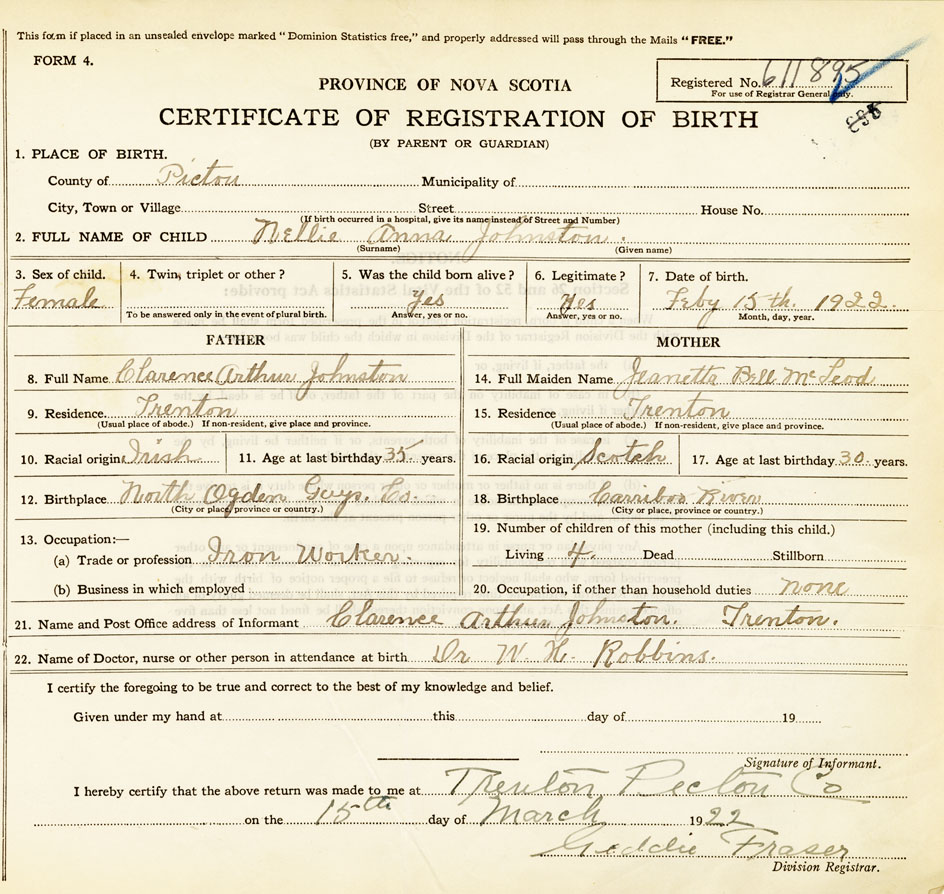 This form if placed in an unsealed envelope marked "Dominion Statistics free," and properly addressed will pass through the Mails "FREE."
FORM 4.
PROVINCE OF NOVA SCOTIA
Registered No. 611895
For use of Registrar General only.
CERTIFICATE OF REGISTRATION OF BIRTH
(BY PARENT OR GUARDIAN)
1. PLACE OF BIRTH.
County of Pictou Municipality of
City, Town or Village Street House No.
(If birth occurred in a hospital, give its name instead of Street and Number)
2. FULL NAME OF CHILD Nellie Anna Johnston.
(Surname) (Given name)
3. Sex of child. 4. Twin, triplet or other? 5. Was the child born alive? 6. Legitimate? 7. Date of birth.
Female Yes Yes Feby 15th. 1922.
To be answered only in the event of plural birth. Answer, yes or no. Answer, yes or no. Month, day, year.
FATHER MOTHER
8. Full Name Clarence Arthur Johnston 14. Full Maiden Name Jeanetta Bell McLeod
9. Residence. Trenton 15. Residence Trenton
(Usual place of abode.) If non-resident, give place and province. (Usual place of abode.) If non-resident, give place and province.
10. Racial origin Irish 11. Age at last birthday 35 years. 16. Racial origin Scotch 17. Age at last birthday 30 years.
12. Birthplace North Ogden Guys. Co. 18. Birthplace Carriboo River
(City or place, province or country.) (City or place, province or country.)
13. Occupation:— 19. Number of children of this mother (including this child.)
(a) Trade or profession Iron Worker. Living 4. Dead Stillborn
(b) Business in which employed 20. Occupation, if other than household duties none
21. Name and Post Office address of Informant Clarence Arthur Johnston. Trenton.
22. Name of Doctor, nurse or other person in attendance at birth Dr W. H. Robbins.
I certify the foregoing to be true and correct to the best of my knowledge and belief.
Given under my hand at this day of 19
Signature of Informant.
I hereby certify that the above return was made to me at Trenton Pecton Co
on the 15th day of March 1922
Geddie Fraser
Division Registrar.